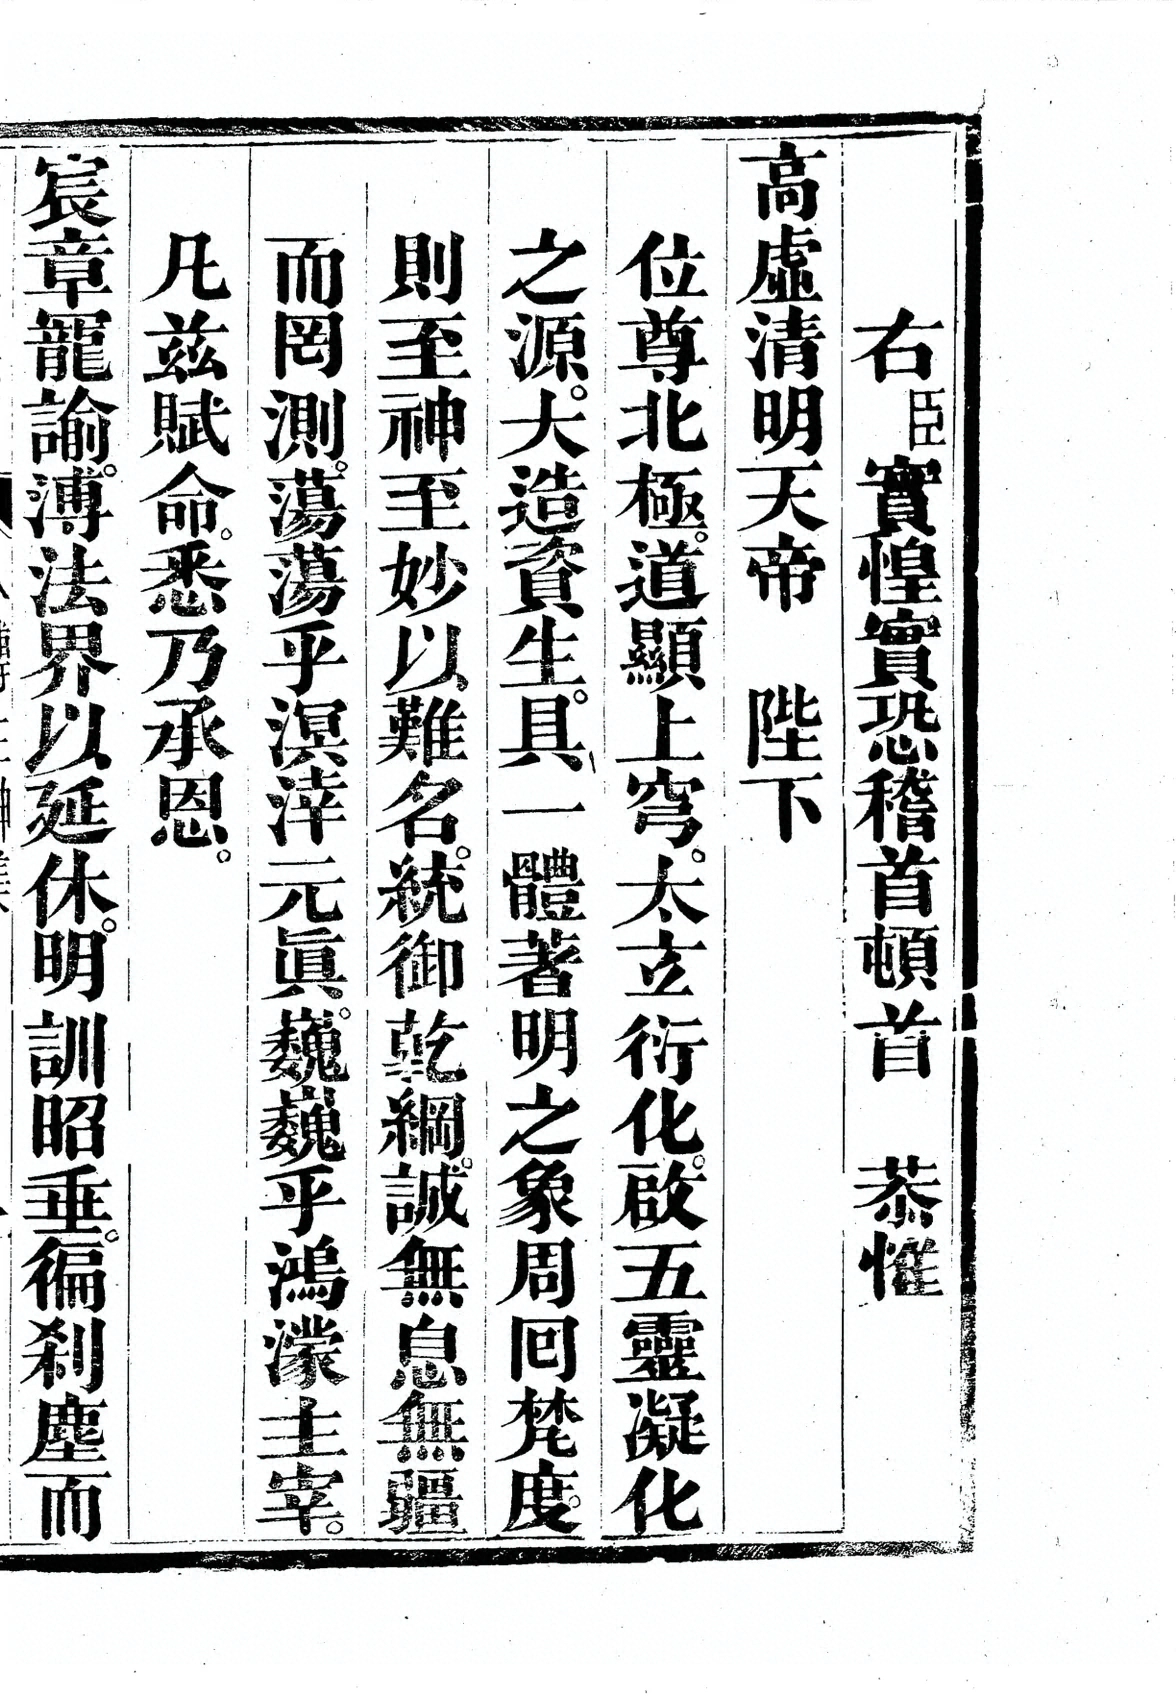 右臣實惶實恐稽首頓首　恭惟
高虛清明天帝　陛下
位尊北極。道顯上穹。太立衍化。啟五靈凝化
之源。大造資生。具一體著明之象周回梵度。
則至神至妙以難名。統御乾綱。誠無息無疆
而罔測。蕩蕩乎溟涬元眞。巍巍乎鴻濛主宰。
凡茲賦命。悉乃承恩。
宸章寵諭。溥法界以延休。明訓昭垂。徧刹塵而